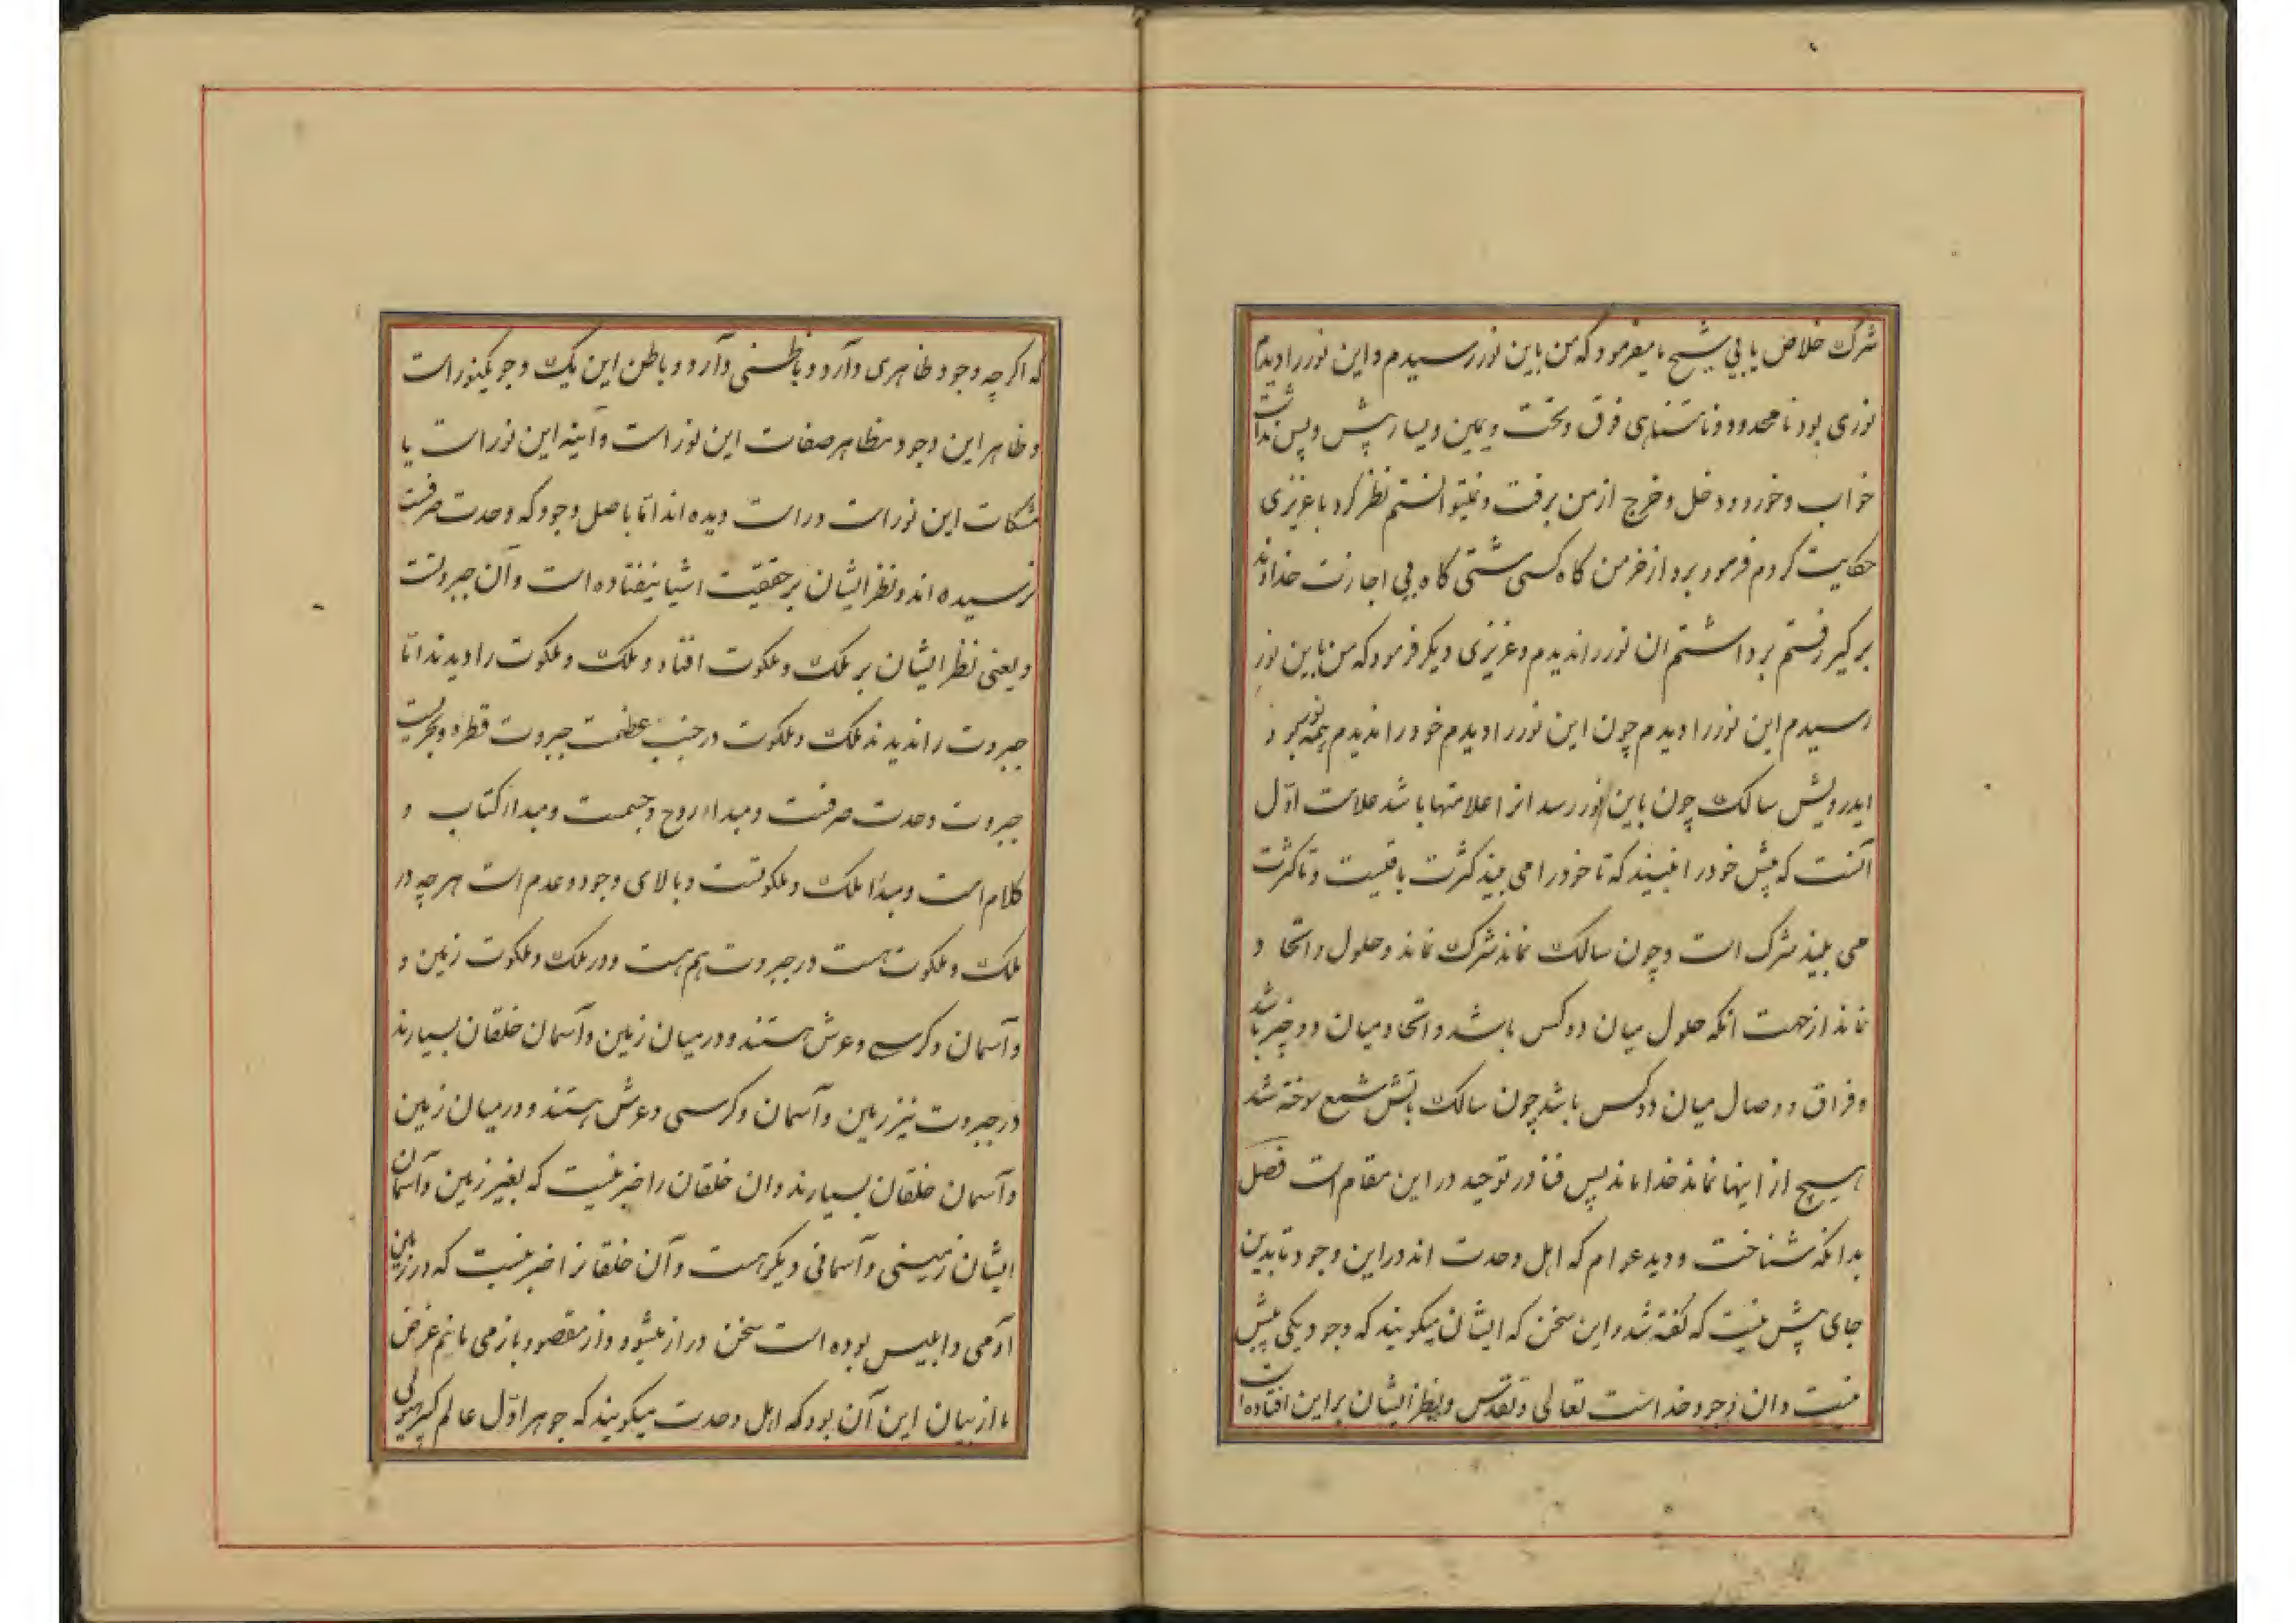 شرک خلاص یابی شیخ ما میفرمود که من باین نور رسیدم و این نور را دیدم
نوری بود نامحدود و نامتناهی فوق و تحت و یمین و یسار پیش و پس نداشت
خواب و خورد و دخل و خرج از من برفت و نمیتوانستم نظر کرد با عزیزی
حکایت کردم فرمود برو از خرمن کاه کسی مشتی کاه بی اجازت خداوند
برگیر رفتم برداشتم ان نور را ندیدم و عزیزی دیگر فرمود که من باین نور
رسیدم این نور را دیدم چون این نور را دیدم خود را ندیدم همه نور بود
ایدرویش سالک چون باین نور رسد انرا علامتها باشد علامت اوّل
آنست که پیش خود را نبیند که تا خود را می بیند کثرت باقیست و تا کثرت
می بیند مشرک است و چون سالک نماند شرک نماند و حلول و اتحاد
نماند از جهت انکه حلول میان دو کس باشد و اتحاد میان دو چیز باشد
و فراق و وصال میان دو کس باشد چون سالک باتش شمع سوخته شد
هیچ از اینها نماند خدا ماند پس فنا در توحید در این مقام است فصل
بدانکه شناخت و دید عوام که اهل وحدت اند در این وجود تا بدین
جای پیش نیست که گفته شد و این سخن که ایشان میگویند که وجود یکی بیش
نیست و ان وجود خداست تعالی و تقدس و نظر ایشان بر این افتاده است
که اگر چه وجود ظاهری دارد و باطنی دارد و باطن این یک وجود یکنور است
و ظاهر این وجود مظاهر صفات این نور است و آینه این نور است یا
مشکات این نور است در است دیده اند امّا باصل وجود که وحدت صرفست
نرسیده اند و نظر ایشان بر حقیقت اشیا نیفتاده است و آن جبروتست
و یعنی نظر ایشان بر ملک و ملکوت افتاد و ملک و ملکوت را دیدند امّا
جبروت را ندیدند ملک و ملکوت در جنب عظمت جبروت قطره و بحریست
جبروت وحدت صرفست و مبداء روح و جسمست و مبداء کتاب و
کلام است و مبداء ملک و ملکوتست و بالای وجود و عدم است هر چه در
ملک و ملکوت هست در جبروت هم هست و در ملک و ملکوت زمین و
و آسمان و کرسی و عرش هستند و در میان زمین و آسمان خلقان بسیارند
در جبروت نیز زمین و آسمان و کرسی و عرش هستند و در میان زمین
و آسمان خلقان بسیارند و ان خلقان را خبر نیست که بغیر زمین و آسمان
ایشان زمینی و آسمانی دیگر هست و آن خلقانرا خبر نیست که در زمین
آدمی و ابلیس بوده است سخن دراز میشود و از مقصود باز می مانیم غرض
ما از بیان این آن بود که اهل وحدت میگویند که جوهر اوّل عالم کبیر هیولی